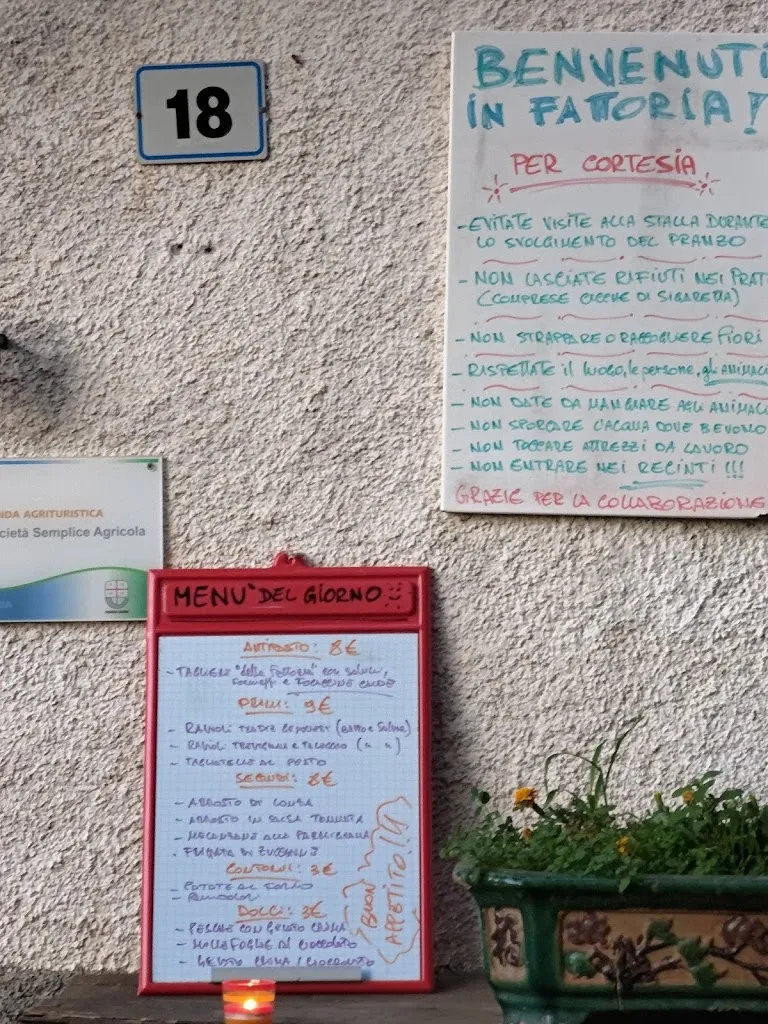 18
BENVENUTI
IN FATTORIA!
PER CORTESIA
-EVITATE VISITE ALLA STALLA DURANTE
LO SVOLGIMENTO DEL PRANZO
- NON LASCIATE RIFIUTI NEI PRATI
(COMPRESE CICCHE DI SIGARETTA)
-NON STRAPPARE O RACCOGLIERE FIORI
- RISPETTATE il luogo, le persone, gli ANIMALI
- NON DATE DA MANGIARE AGLI ANIMALI
- NON SPORCARE L'ACQUA DOVE BEVONO
- NON TOCCARE ATTREZZI DA LAVORO
- NON ENTRARE NEI RECINTI !!!
GRAZIE PER LA COLLABORAZIONE
NDA AGRITURISTICA
cietà Semplice Agricola
MENU' DEL GIORNO
ANTIPASTO: 8€
- TAGLIERE "della Fattoria" con salumi,
formaggi e FOCACCINE CALDE
PRIMI: 9€
- RAVIOLI (BURRO e Salvia)
- RAVIOLI e TALEGGIO (" ")
- TAGLIATELLE AL PESTO
SECONDI: 8€
- ARROSTO DI LONZA
- ARROSTO IN SALSA TONNATA
- MELANZANE ALLA PARMIGIANA
- FRITTATA DI ZUCCHINE
CONTORNI: 3€
- PATATE AL FORNO
- POMODORI
DOLCI: 3€
- PESCHE CON GELATO CREMA
- MILLEFOGLIE AL CIOCCOLATO
- GELATO CREMA / CIOCCOLATO
BUON
APPETITO!!